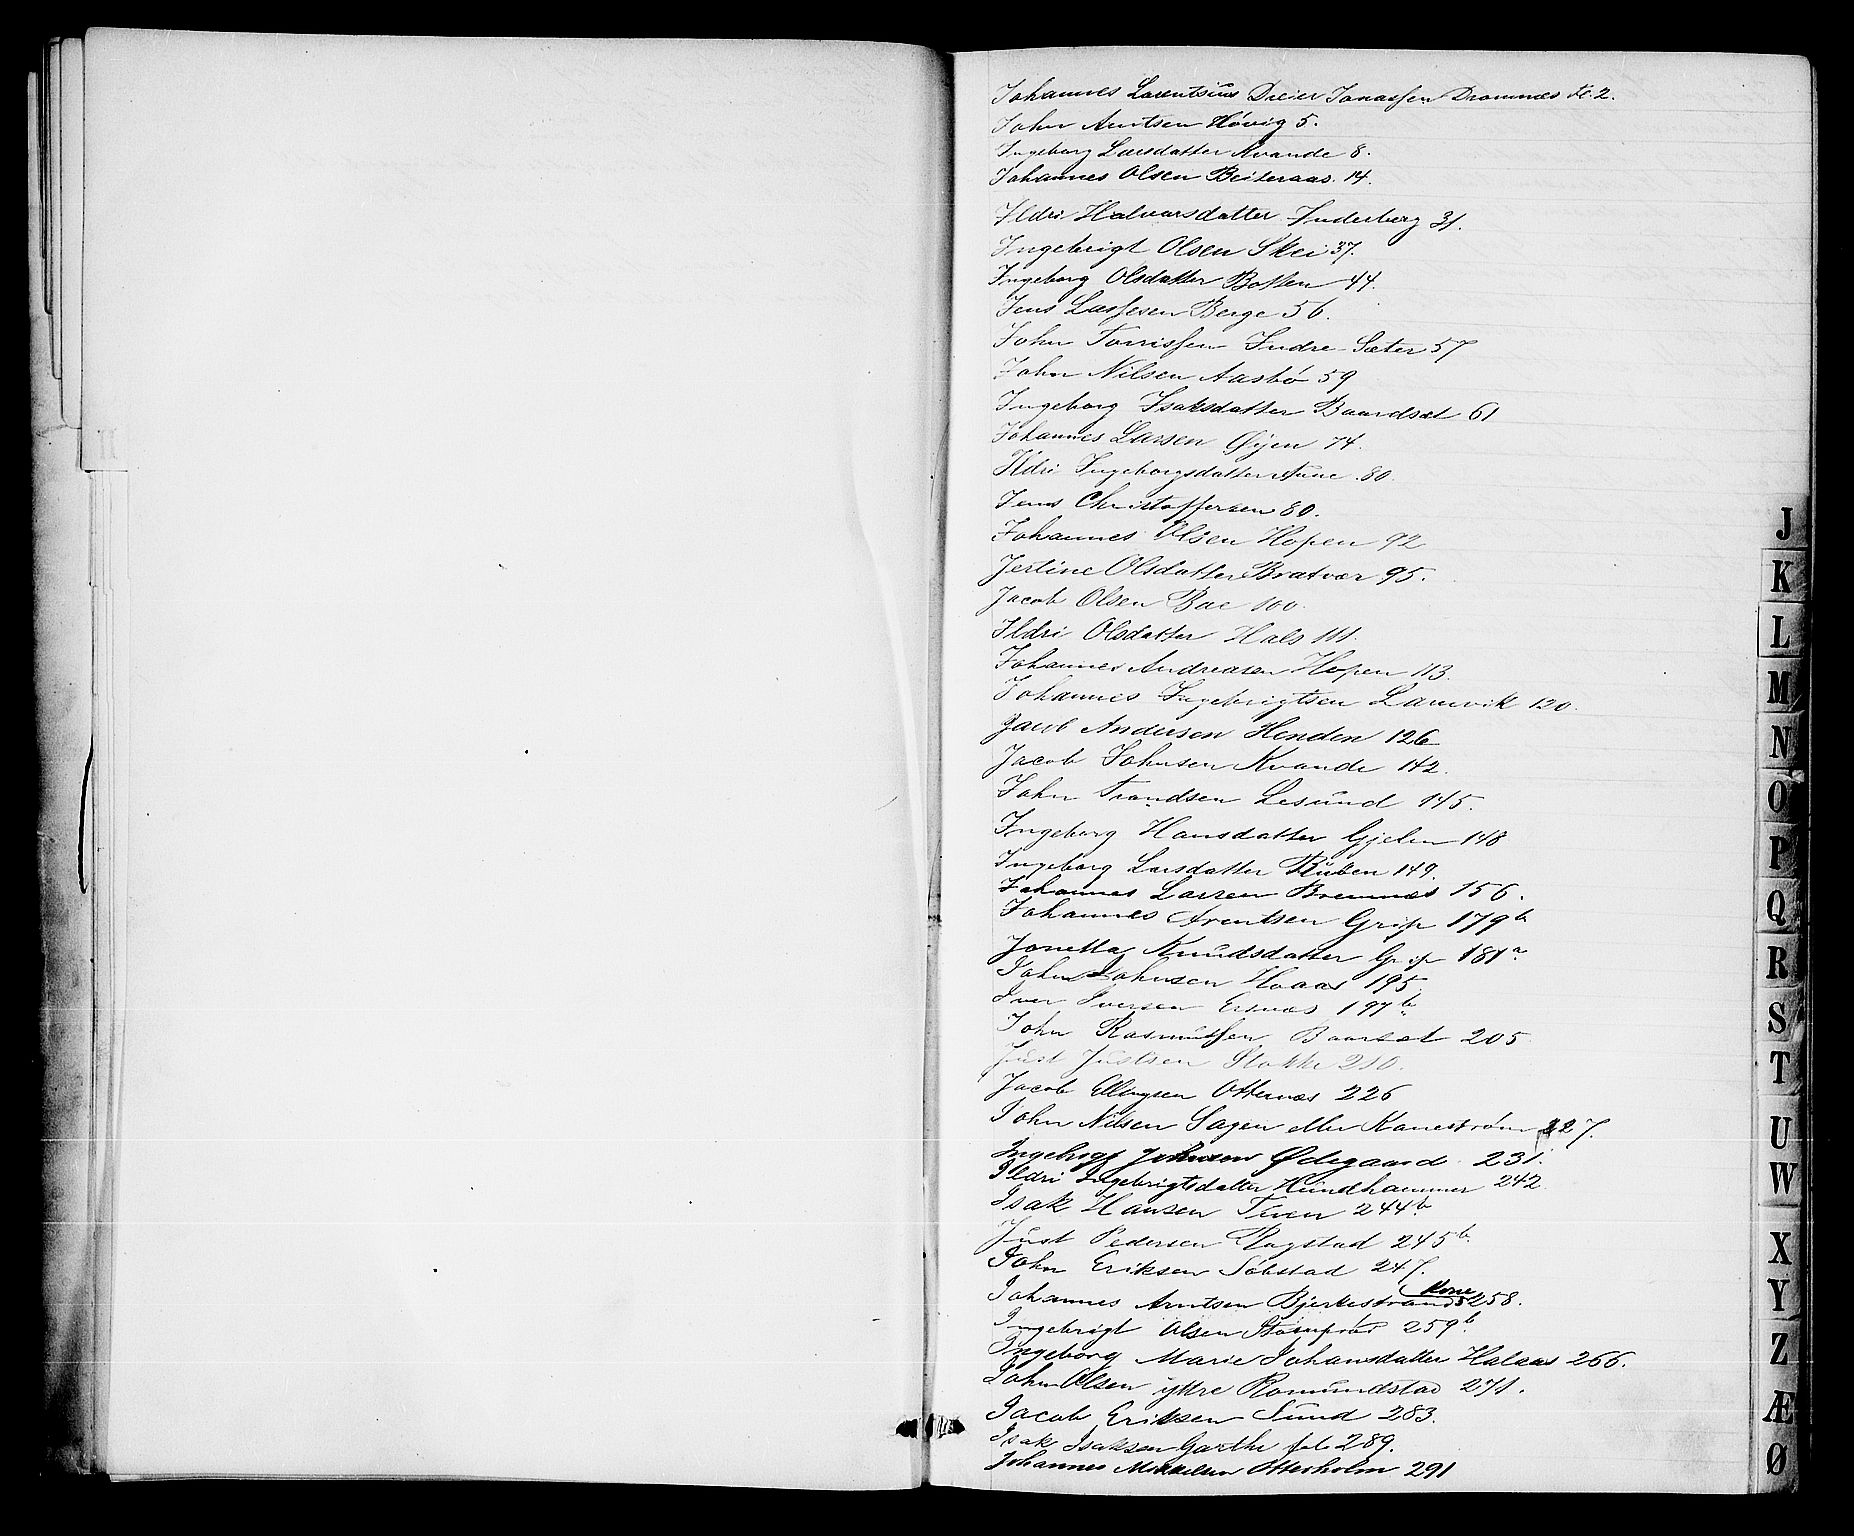 Johannes Lorentsius Dreier Jonassen Dromnes fl. 2.
John Arntsen Høvig 5.
Ingeborg Larsdatter Kvande 8.
Johannes Olsen Beiteraas 14.
Ildri Halvarsdatter Inderberg 31.
Ingebrigt Olsen Skei 37.
Ingeborg Olsdatter Botten 44.
Jens Lassesen Berge 56.
John Torrissen Indre-Sæter 57
John Nilsen Aasbø 59
Ingeborg Isaksdatter Baardset 61
Johannes Larsen Øyen 74.
Ildri Ingeborgsdatter Aune 80.
Jens Christoffersen 80.
Johannes Olsen Hopen 92
Jertine Olsdatter Bratvær 95.
Jacob Olsen Bae 100.
Ildri Olsdatter Hals 111.
Johannes Andreasen Hopen 113.
Johannes Ingebrigtsen Lamvik 120.
Jacob Andersen Henden 126
Jacob Johnsen Kvande 142.
John Trondsen Lesund 145.
Ingeborg Hansdatter Gjelen 148
Ingeborg Larsdatter Ruben 149.
Johannes Larsen Bremnes 156.
Johannes Arentsen Grip 179 b
Jonetta Knudsdatter Grip 181 a
John Johnsen Hoaas 195.
Iver Iversen Ersnæs 197 b
John Rasmussen Baarset 205
Just Justsen Stokke 210.
Jacob Ellingsen Otternæs 226
John Nilsen Sagen eller Kanestrøm 227.
Ingebrigt Johnsen Ødegaard 231.
Ildri Ingebrigtsdatter Hundhammer 242
Isak Hansen Tven 244 b
Just Pedersen Rogstad 245 b.
John Eriksen Solstad 247.
Johannes Arntsen Bjerkestrands Kone 258.
Ingebrigt Olsen 259 b.
Ingeborg Marie Johansdatter Halaas 266.
John Olsen yttre Romundstad 271.
Jacob Eriksen Sund 283.
Isak Isaksen Garthe fol. 289.
Johannes Mikkelsen Otterholm 291
J
K
L
M
N
O
P
Q
R
S
T
U
W
X
Y
Z
Æ
Ø